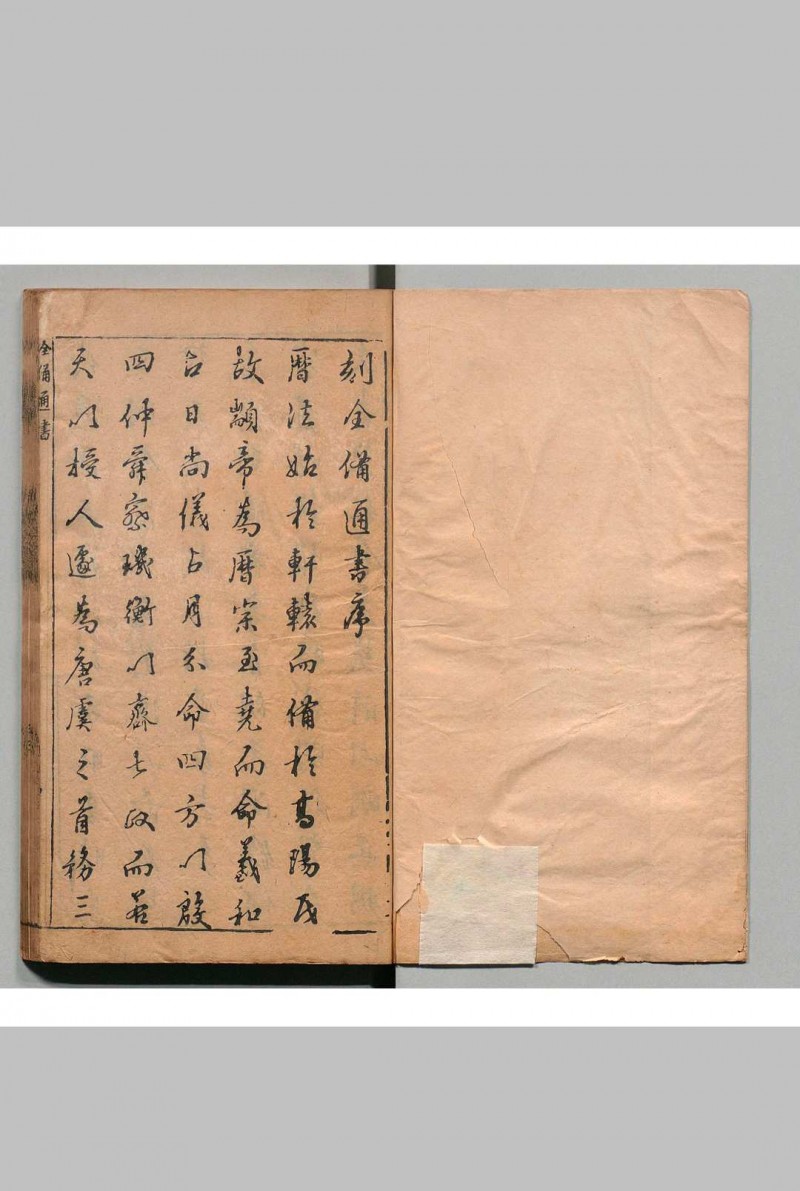 刻全備通書序
曆法始於軒轅而備於高陽氏
故顓帝為曆宗至堯而命羲和
占日尚儀占月分命四方以殷
四仲舜察璣衡以齊七政而若
天以授人遂為唐虞之首務三
全備通書